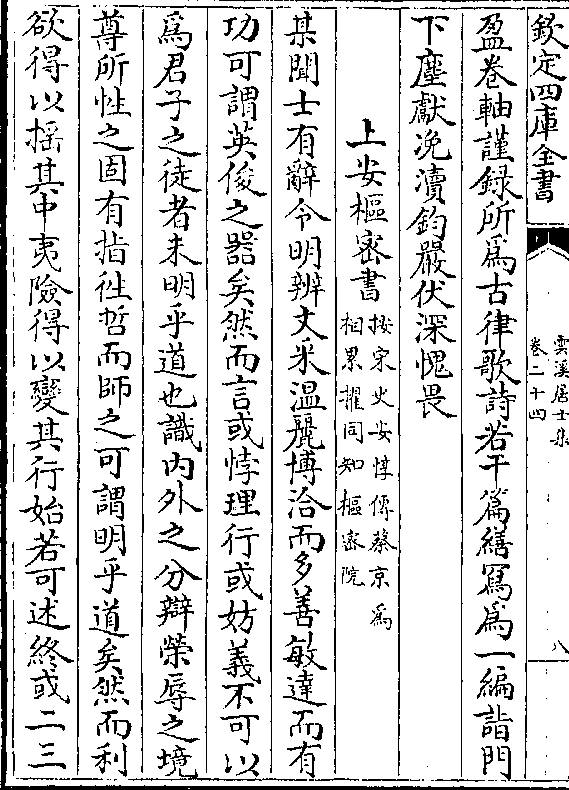 欽定四庫全書
雲溪居士集
卷二十四
八
盈卷軸謹録所爲古律歌詩若干篇繕寫爲一編詣門
下塵獻浼瀆鈞嚴伏深愧畏
上安樞密書
按宋史安惇傳蔡京爲
相累擢同知樞密院
某聞士有辭令明辨文采温麗博洽而多善敏達而有
功可謂英俊之器矣然而言或悖理行或妨義不可以
爲君子之徒者未明乎道也識内外之分辯榮辱之境
尊所性之固有指徃哲而師之可謂明乎道矣然而利
欲得以揺其中夷險得以變其行始若可述終或二三